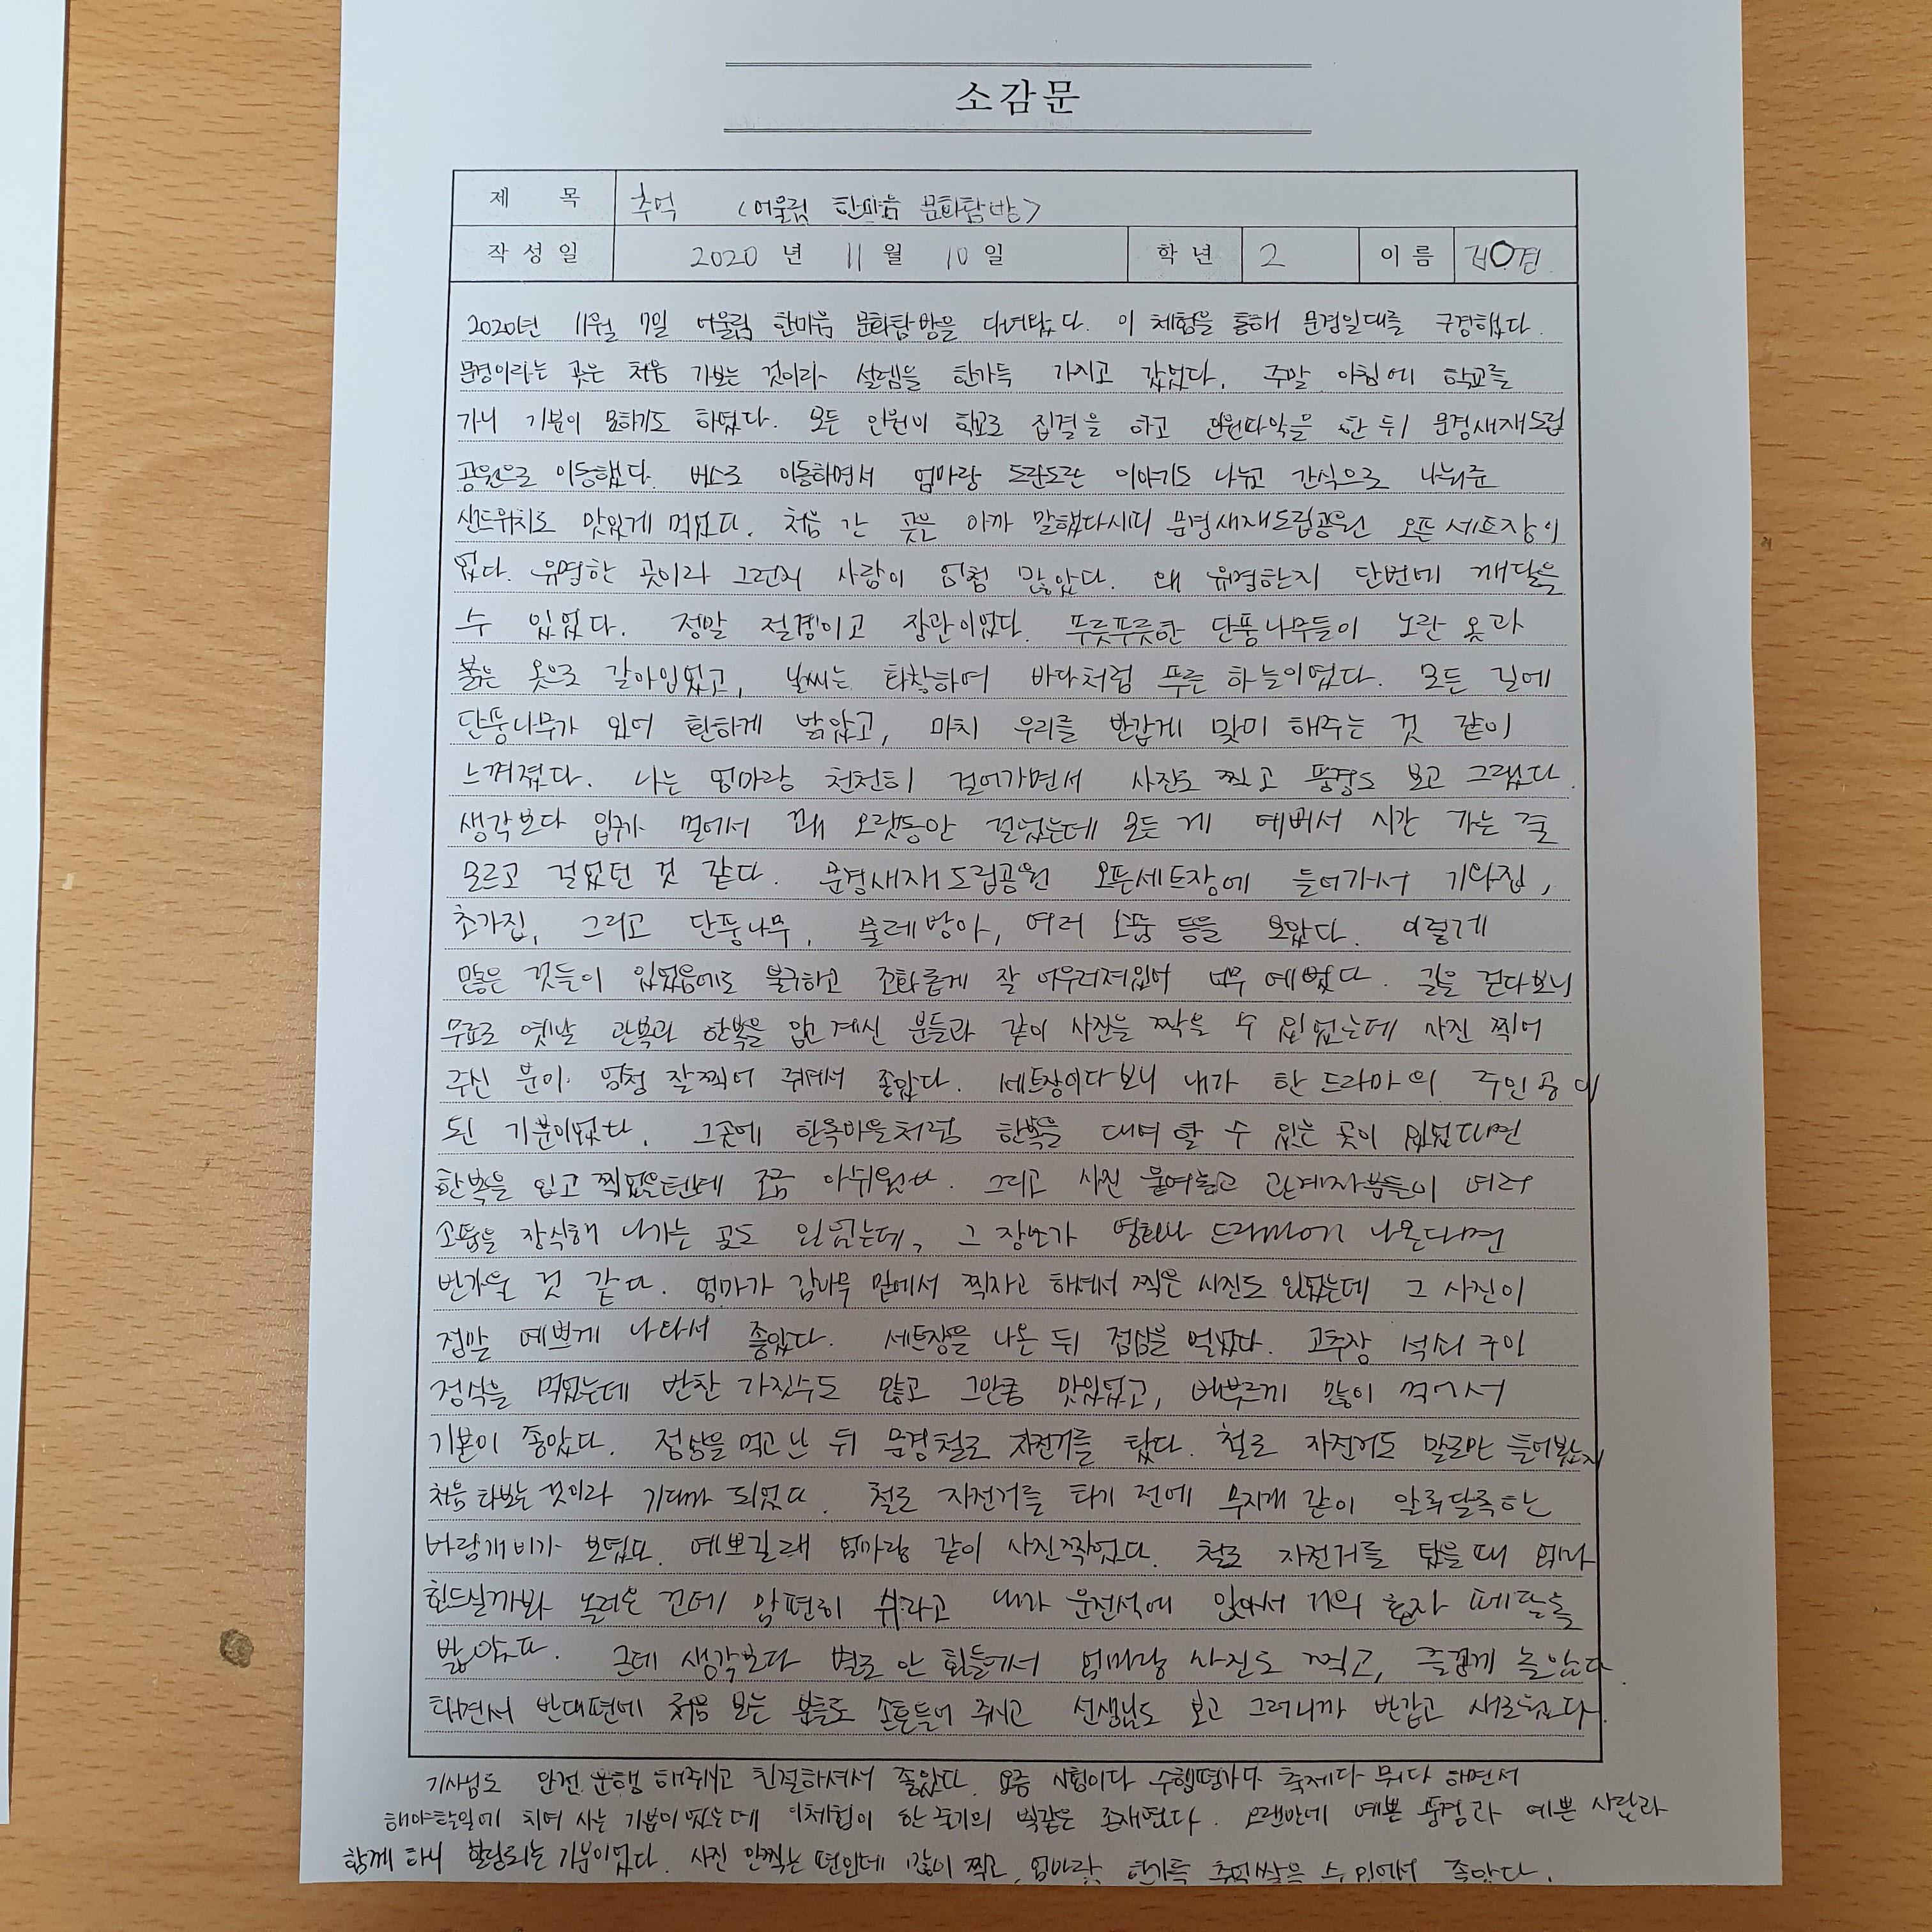 소감문
제 목 추억 <어울림 한마음 문화탐방>
작성일 2020 년 11 월 10 일 학년 2 이름 김O겸
2020년 11월 7일 어울림 한마음 문화탐방을 다녀왔다. 이 체험을 통해 문경일대를 구경했다.
문경이라는 곳은 처음 가보는 것이라 설렘을 한가득 가지고 갔었다. 주말 아침에 학교를
가니 기분이 묘하기도 하였다. 모든 인원이 학교로 집결을 하고 인원파악을 한 뒤 문경새재도립
공원으로 이동했다. 버스로 이동하면서 엄마랑 도란도란 이야기도 나누고 간식으로 나눠준
샌드위치도 맛있게 먹었다. 처음 간 곳은 아까 말했다시피 문경새재도립공원 오픈세트장이
였다. 유명한 곳이라 그런지 사람이 엄청 많았다. 왜 유명한지 단번에 깨달을
수 있었다. 정말 절경이고 장관이었다. 푸릇푸릇한 단풍나무들이 노란 옷과
붉은 옷으로 갈아입었고, 날씨는 화창하여 바다처럼 푸른 하늘이였다. 모든 길에
단풍나무가 있어 환하게 밝았고, 마치 우리를 반갑게 맞이 해주는 것 같이
느껴졌다. 나는 엄마랑 천천히 걸어가면서 사진도 찍고 풍경도 보고 그랬다.
생각보다 입구가 멀어서 꽤 오랫동안 걸었는데 모든 게 예뻐서 시간 가는 줄
모르고 걸었던 것 같다. 문경새재도립공원 오픈세트장에 들어가서 기와집,
초가집, 그리고 단풍나무, 물레방아, 여러 소품 등을 보았다. 이렇게
많은 것들이 있었음에도 불구하고 조화롭게 잘 어우러져있어 너무 예뻤다. 길을 걷다보니
무료로 옛날 관복과 한복을 입고 계신 분들과 같이 사진을 찍을 수 있었는데 사진 찍어
주신 분이 엄청 잘찍어 주셔서 좋았다. 세트장이다보니 내가 한 드라마의 주인공이
된 기분이었다. 그곳에 한옥마을처럼 한복을 대여 할 수 있는 곳이 있었다면
한복을 입고 찍었을텐데 조금 아쉬웠다. 그리고 사진 붙여놓고 관계자분들이 여러
소품을 장식해 나가는 곳도 있었는데, 그 장소가 영화나 드라마에 나온다면
반가울 것 같다. 엄마가 감나무 밑에서 찍자고 하셔서 찍은 사진도 있었는데 그 사진이
정말 예쁘게 나와서 좋았다. 세트장을 나온 뒤 점심을 먹었다. 고추장 석쇠 구이
정식을 먹었는데 반찬 가짓수도 많고 그만큼 맛있었고, 배부르게 많이 먹어서
기분이 좋았다. 점심을 먹고 난 뒤 문경철로 자전거를 탔다. 철로 자전거도 말로만 들어봤지
처음 타보는 것이라 기대가 되었다. 철로 자전거를 타기 전에 무지개 같이 알록달록한
바람개비가 보였다. 예쁘길래 엄마랑 같이 사진찍었다. 철로 자전거를 탔을 때 엄마
힘드실까봐 놀러온 건데 맘 편히 쉬라고 내가 운전석에 앉아서 거의 혼자 페달을
밟았다. 근데 생각보다 별로 안 힘들어서 엄마랑 사진도 찍고, 즐겁게 놀았다
타면서 반대편에 처음 보는 분들도 손흔들어 주시고 선생님도 보고 그러니까 반갑고 새로웠다.
기사님도 안전 운행 해주시고 친절하셔서 좋았다. 요즘 시험이다 수행평가다 축제다 뭐다 하면서
해야할일에 치여 사는 기분이였는데 이체험이 한 줄기의 빛같은 존재였다. 오랜만에 예쁜 풍경과 예쁜 사람과
함께 하니 힐링되는 기분이었다. 사진 안찍는 편인데 많이 찍고, 엄마랑 한가득 추억쌓을 수 있어서 좋았다.